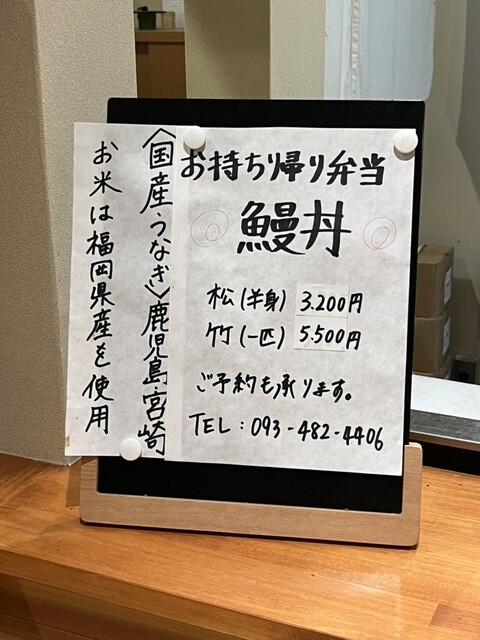 お持ち帰り弁当
鰻丼
松(半身) 3.200円
竹(一匹) 5.500円
ご予約も承ります。
TEL:093-482-4406
〈国産うなぎ〉鹿児島、宮崎
お米は福岡県産を使用